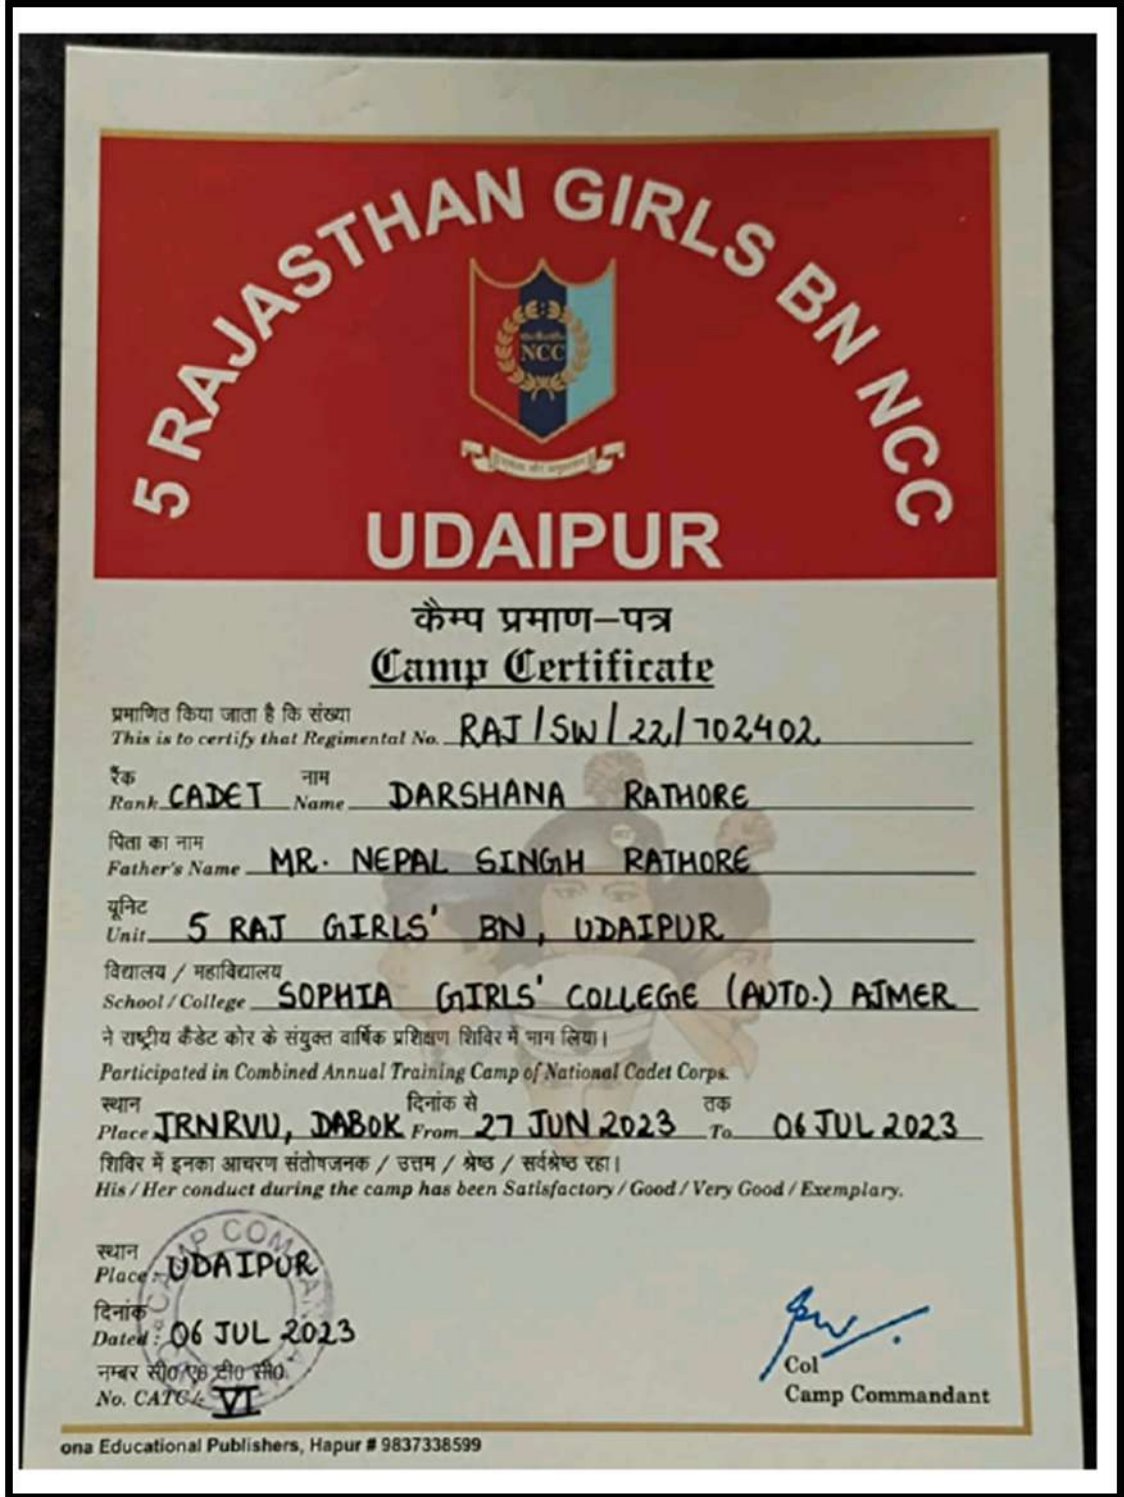 5 RAJASTHAN GIRLS BN NCC
NCC
UDAIPUR
कैम्प प्रमाण–पत्र
Camp Certificate
प्रमाणित किया जाता है कि संख्या
This is to certify that Regimental No. RAJ/SW/22/702402
रैंक नाम
Rank CADET Name DARSHANA RATHORE
पिता का नाम
Father's Name MR. NEPAL SINGH RATHORE
यूनिट
Unit 5 RAJ GIRLS' BN, UDAIPUR
विद्यालय / महाविद्यालय
School / College SOPHIA GIRLS' COLLEGE (AUTO.) AJMER
ने राष्ट्रीय कैडेट कोर के संयुक्त वार्षिक प्रशिक्षण शिविर में भाग लिया।
Participated in Combined Annual Training Camp of National Cadet Corps.
स्थान दिनांक से तक
Place JRNRVU, DABOK From 27 JUN 2023 To 06 JUL 2023
शिविर में इनका आचरण संतोषजनक / उत्तम / श्रेष्ठ / सर्वश्रेष्ठ रहा।
His / Her conduct during the camp has been Satisfactory / Good / Very Good / Exemplary.
CAMP COMMANDANT
स्थान
Place : UDAIPUR
दिनांक
Dated : 06 JUL 2023
नम्बर सी० ए० टी० सी०
No. CATC/- VI
Col
Camp Commandant
ona Educational Publishers, Hapur # 9837338599